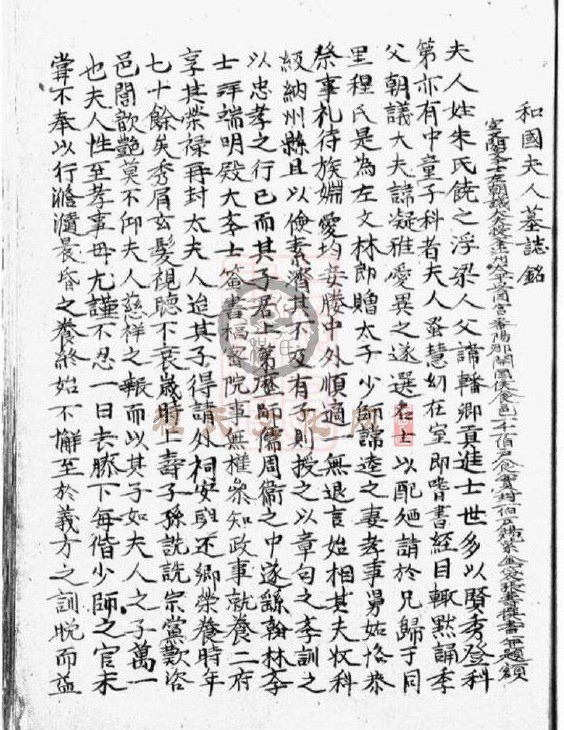 和國夫人墓誌銘
夫人姓朱氏饒之浮梁人父諱轓卿貢進士世多以賢秀登科
第亦有中童子科者夫人蚤慧幼在室即嗜書經目輒黙誦季
父朝議大夫諱凝雅愛異之遂選名士以配廼請於兄歸于同
里程氏是為左文林郎贈太子少師諱逵之妻孝事舅姑恪恭
祭事礼待族婣愛均妾媵中外順適一無退言始相其夫收科
級納州縣且以儉素濟其不及有子則授之以章句之孝訓之
以忠孝之行已而其子君上第歷師儒周衛之中遂繇翰林孝
士拜端明殿大孝士簽書樞密院事兼權參知政事就養二府
享其榮祿再封太夫人迨其子得請外祠安輿還鄉榮養時年
七十餘矣秀眉玄髮視聽不衰歲時上壽子孫詵詵宗黨歎咨
邑閭歆艷莫不仰夫人慈祥之報而以其子如夫人之子萬一
也夫人性至孝事毋尤謹不忍一日去膝下每偕少師之官未
甞不奉以行瀡瀡晨昏之養終始不懈至於義方之訓脫而益